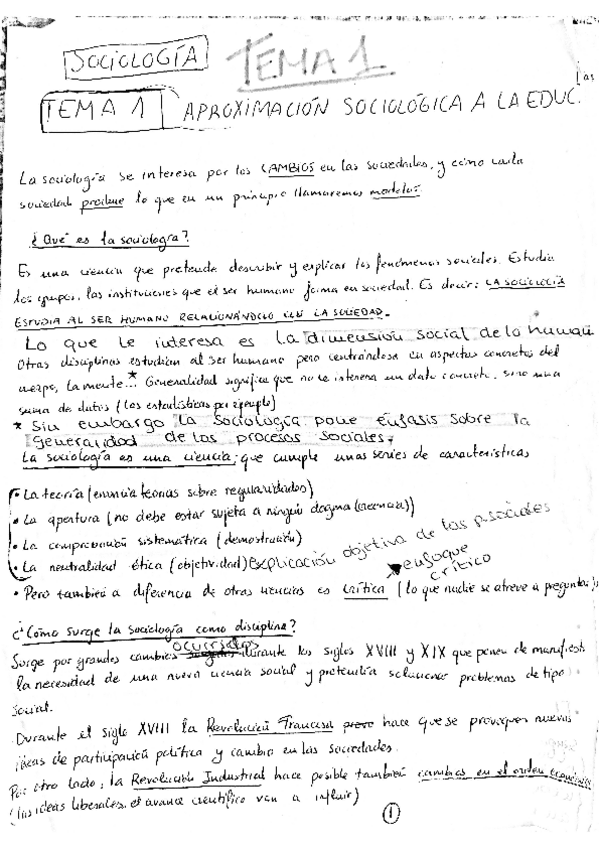 SOCIOLOGÍA TEMA 1
Las
TEMA 1 APROXIMACIÓN SOCIOLÓGICA A LA EDUC.
La sociología se interesa por los CAMBIOS en las sociedades, y cómo cada
sociedad produce lo que en un principio llamaremos modelos.
¿Qué es la sociología?
Es una ciencia que pretende describir y explicar los fenómenos sociales. Estudia
los grupos, las instituciones que el ser humano forma en sociedad. Es decir: LA SOCIOLOGÍA
ESTUDIA AL SER HUMANO RELACIONÁNDOLO CON LA SOCIEDAD.
Lo que le interesa es la dimensión social de lo human
Otras disciplinas estudian al ser humano pero centrándose en aspectos concretos del
cuerpo, la mente...* Generalidad significa que no le interesa un dato concreto, sino una
suma de datos (las estadísticas por ejemplo)
* Sin embargo la sociología pone énfasis sobre la
generalidad de los procesos sociales.
La sociología es una ciencia, que cumple unas series de características
• La teoría (enuncia teorías sobre regularidades)
• La apertura (no debe estar sujeta a ningún dogma (creencia))
• La comprobación sistemática (demostración)
• La neutralidad ética (objetividad) Explicación objetiva de los p. sociales
enfoque
crítico
• Pero también a diferencia de otras ciencias es crítica (lo que nadie se atreve a preguntar)
¿Cómo surge la sociología como disciplina?
Surge por grandes cambios ocurridos durante los siglos XVIII y XIX que ponen de manifiesto
la necesidad de una nueva ciencia social y pretendía solucionar problemas de tipo
social.
Durante el siglo XVIII la Revolución Francesa hace que se provoquen nuevas
ideas de participación política y cambio en las sociedades.
Por otro lado, la Revolución Industrial hace posible también cambios en el orden económico
(las ideas liberales, el avance científico van a influir)
1